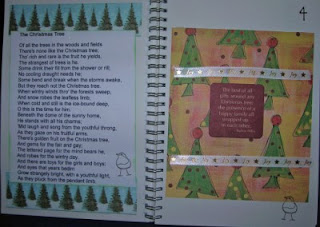 The Christmas Tree
Of all the trees in the woods and fields
There's none like the Christmas tree;
Tho' rich and rare is the fruit he yields,
The strangest of trees is he.
Some drink their fill from the shower or rill;
No cooling draught needs he;
Some bend and break when the storms awake,
But they reach not the Christmas tree.
When wintry winds thro' the forests sweep,
And snow robes the leafless limb;
When cold and still is the ice-bound deep,
O this is the time for him:
Beneath the dome of the sunny home,
He stands with all his charms;
'Mid laugh and song from the youthful throng,
As they gaze on his fruitful arms.
There's golden fruit on the Christmas tree,
And gems for the fair and gay;
The lettered page for the mind bears he,
And robes for the wintry day.
And there are toys for the girls and boys;
And eyes that years bedim
Grow strangely bright, with a youthful light,
As they pluck from the pendant limb.
4
The best of all
gifts around any
Christmas tree:
the presence of a
happy family all
wrapped up
in each other.
Joy Joy Joy
Joy Joy